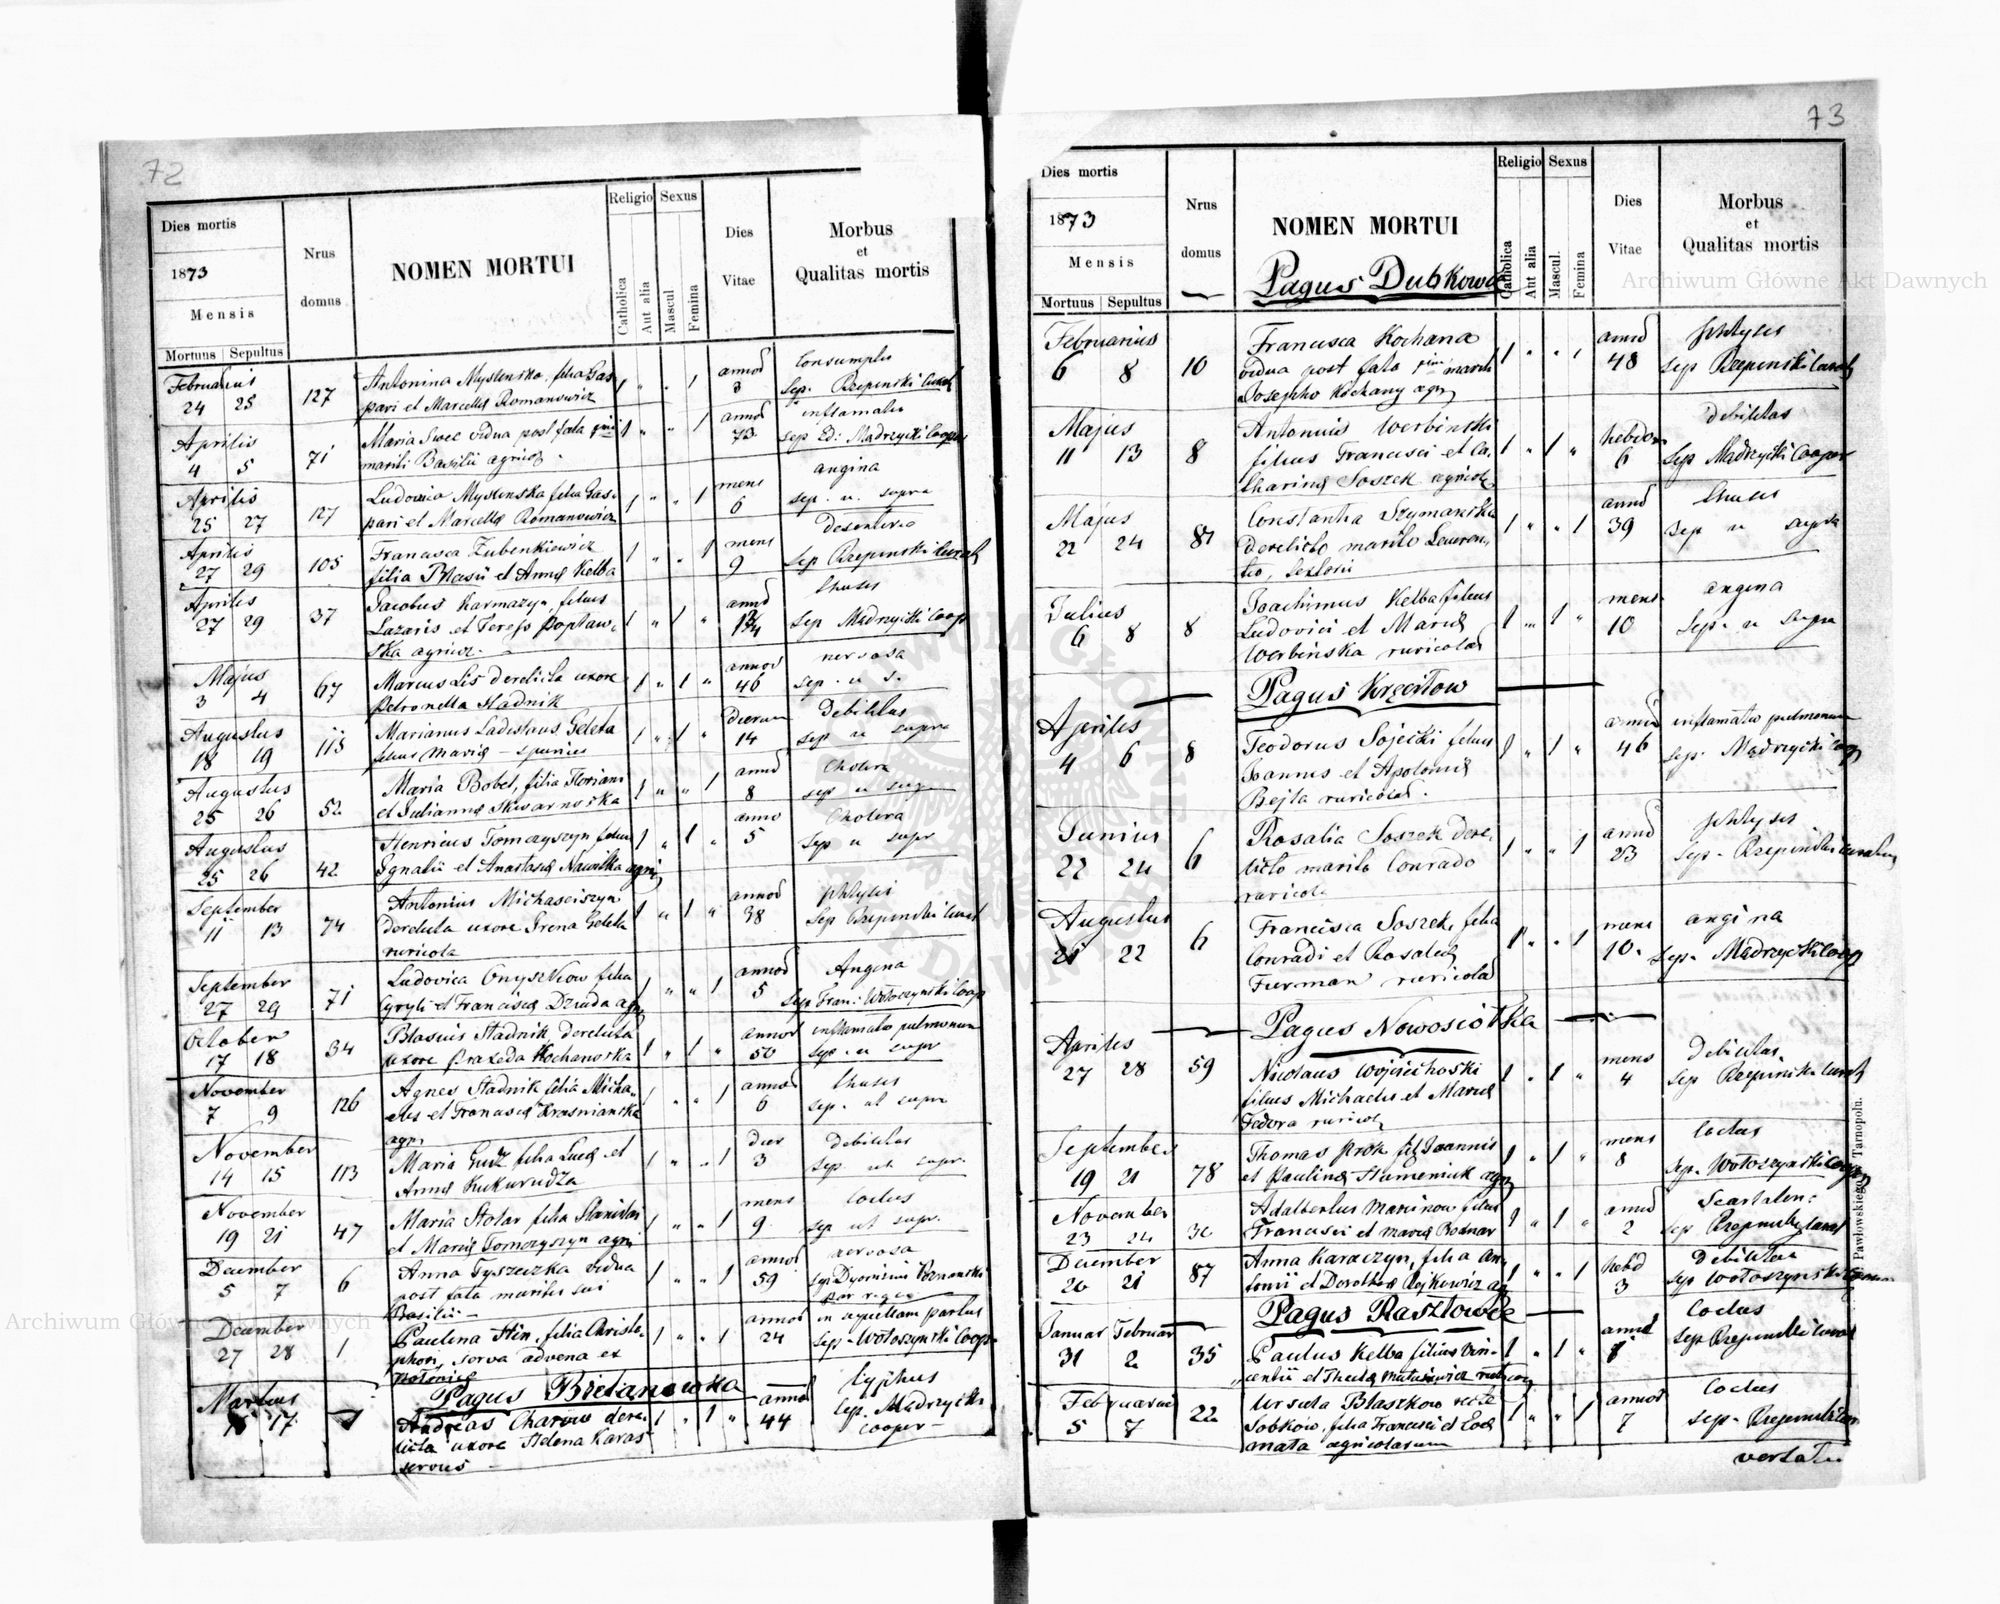 72
Dies mortis
1873
Mensis
Mortuus | Sepultus
Nrus
domus
NOMEN MORTUI
Religio
Catholica
Aut alia
Sexus
Mascul
Femina
Dies
Vitae
Morbus
et
Qualitas mortis
Februarius
24 25 127
Antonina Myslenska filia Gas
pari et Marcella Romanowicz
annos
3
sep. Rzepinski Curat
Aprilis
4 5 71
Maria Swec vidua post fata
mariti Basilii agricol
annos
73
inflamatio
sep Ed: Madrzycki Cooper
Aprilis
25 27 127
Ludovica Myslenska filia Gas
pari et Marcella Romanowicz
mens
6
angina
sep. u. supra
Aprilis
27 29 105
Francisca Zubenkiewicz
filia Blasii et Anna Kelba
mens
9
sep Rzepinski Curat
Aprilis
27 29 37
Jacobus Karmazyn filius
Lazaris et Teresa Popław
ska agricol
thusis
sep Madrzycki Coop
Majus
3 4 67
Marcus Lis derelicta uxore
Petronella Stadnik
annos
46
nervosa
sep. u s.
Augustus
18 19 113
Marianus Ladislaus Geleta
filius Maria - spurius
dierum
14
Debilitas
sep u supra
Augustus
25 26 52
Maria Bobel, filia Floriani
et Julianna Skwarnoska
annos
8
Cholera
sep u sup
Augustus
25 26 42
Henricus Tomczyszyn filius
Ignatii et Anastasia Nawilka agri
anno
5
Cholera
sep u supr
September
11 13 74
Antonius Michasciszyn
Derelicta uxore Irena Geleta
ruricola
annos
38
phtysis
sep Rzepinski Curat
September
27 29 71
Ludovica Onyszkow filia
Cyryli et Francisca Dziuda agr
annos
5
Angina
sep Fran: Wołoszynski Coop
October
17 18 34
Blasius Stadnik derelicta
uxore Praxeda Kochanoska
annos
50
inflamatio pulmonum
sep. u supr
November
7 9 126
Agnes Stadnik filia Micha
elis et Francisca Krasnianska
agr
annos
6
thusis
sep. ut supra
November
14 15 113
Maria Gudz filia Luca et
Anna Kukurudza
dier
3
debilitas
sep. ut supr.
November
19 21 47
Maria Stolar filia Stanislai
et Maria Tomczyszyn agri
mens
9
sep ut supr.
December
5 7 6
Anna Tyszeczka vidua
post fata maritis sui
Basilii
annos
59
nervosa
sep Dyonisius Poznanski
par r. gr.
December
27 28 1
Paulina Stin, filia Christo
phori, serva advena ex
Polonia
annos
24
in sequellam partus
sep. Wołoszynski Coop
Pagus Bielanowka
Martius
17
Andreas Charous dere
licta uxore Helena Karas
servus
annos
44
typhus
sep. Madrzycki
cooper
73
Dies mortis
1873
Mensis
Mortuus | Sepultus
Nrus
domus
NOMEN MORTUI
Pagus Dubkowce
Religio
Catholica
Aut alia
Sexus
Mascul.
Femina
Dies
Vitae
Morbus
et
Qualitas mortis
Februarius
6 8 10
Francisca Kochana
vidua post fata mariti
Josepho Kochany agr
annos
48
phtysis
sep Rzepinski Curat
Majus
11 13 8
Antonius Werbinski
filius Francisci et Ca
tharina Soszek agricol
hebdom
6
Debilitas
sep Madrzycki Cooper
Majus
22 24
Constantia Szymanska
Derelicto marito Lauren
tio, sextorii
annos
39
thusis
sep u supra
Julius
6 8 8
Joachimus Kelba filius
Ludovici et Maria
Werbinska ruricolae
mens
10
angina
sep. u supra
Pagus Kręciłow
Aprilis
4 6 8
Teodorus Sojecki filius
Joannis et Apolonia
Bejla ruricolae.
annos
46
inflamatio pulmonum
sep. Madrzycki Coop
Junius
22 24 6
Rosalia Soszek dere
licto marito Conrado
ruricola
annos
23
phtysis
sep. Rzepinski curatus
Augustus
21 22 6
Francisca Soszek, filia
Conradi et Rosalia
Furman ruricolae
mens
10.
angina
sep. Madrzycki Coop
Pagus Nowosiołka
Aprilis
27 28 59
Nicolaus Wojciechoski
filius Michaelis et Maria
Fedora ruricol
mens
4
Debilitas
sep Rzepinski Curat
September
19 21 78
Thomas Prok fil Joannis
et Paulina Humeniuk agr
mens
8
sep. Wołoszynski Coop
November
23 24
Adalbertus Marinow filius
Francisci et Maria Bodnar
annos
2
sep Rzepinski Curat
December
20 21 87
Anna Karaczyn, filia An
tonii et Dorothea
hebd
3
Debilitas
sep Wołoszynski
Pagus Rasztowce
Januar Februar
31 2 35
Paulus Kelba filius Vin
centii et Thecla
annus
1
sep Rzepinski Curat
Februarius
5 7 22
Ursula Blaszkow recte
Sobkow, filia Francisci et Eva
mata agricolarum
annos
7
sep. Rzepinski
vertatur
Pawłowskiego w Tarnopolu.
Archiwum Główne Akt Dawnych
Archiwum Główne Akt Dawnych